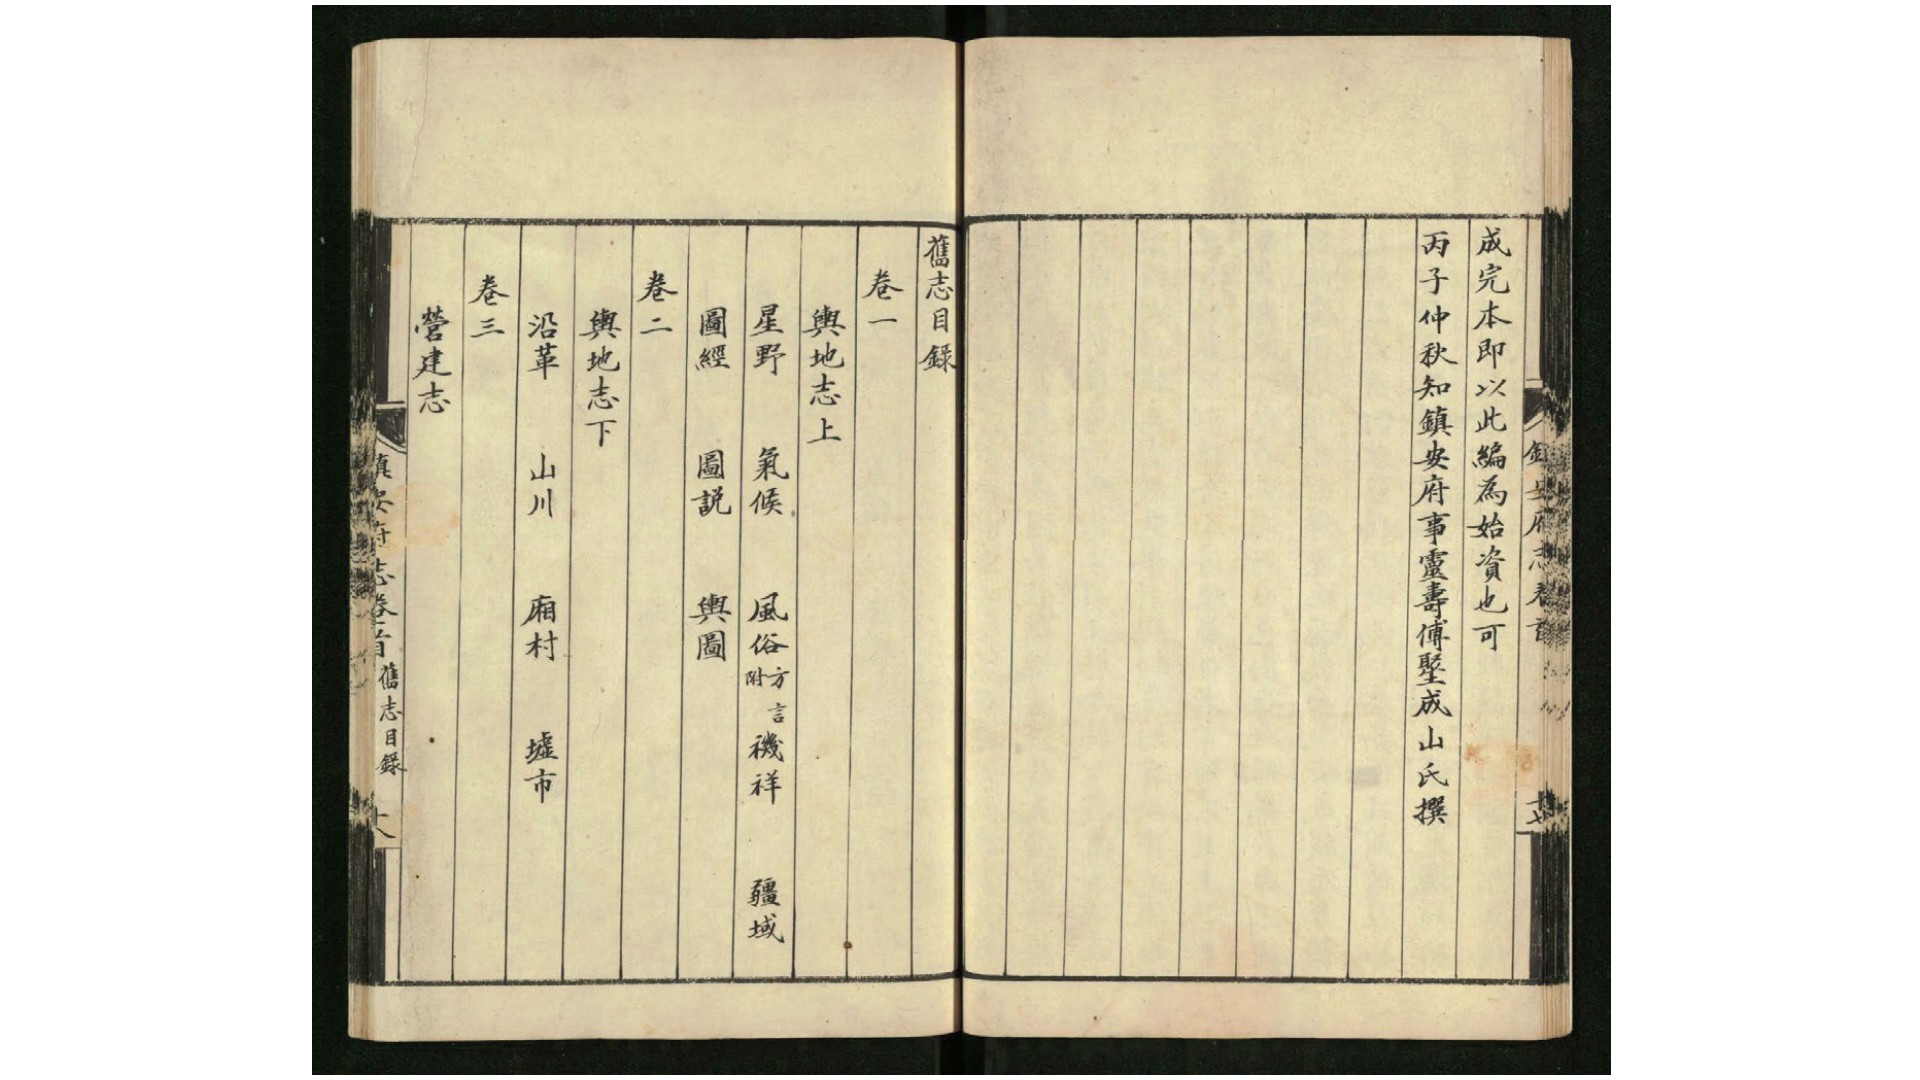 成完本即以此編為始資也可
丙子仲秋知鎮安府事靈壽傅堃成山氏撰
鎮安府志卷首
十七
舊志目錄
卷一
輿地志上
星野 氣候 風俗附方言 禨祥 疆域
圖經 圖説 輿圖
卷二
輿地志下
沿革 山川 廂村 墟市
卷三
營建志
鎮安府志卷首 舊志目錄
十八